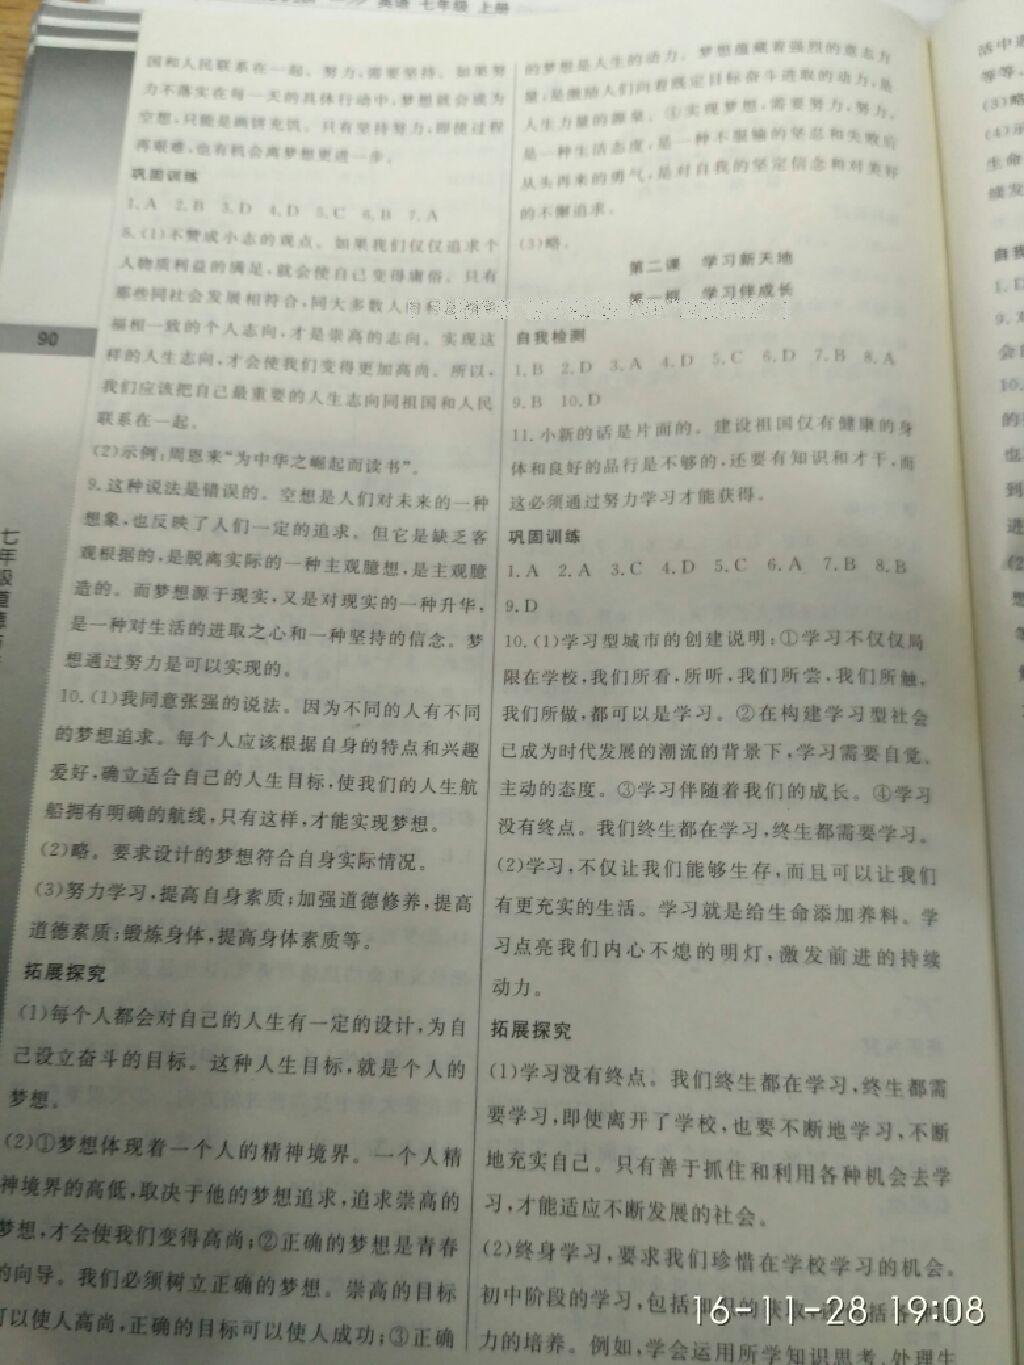 英语 七年级 上册
国和人民联系在一起。努力,需要坚持。如果努
力不落实在每一天的具体行动中,梦想就会成为
空想,只能是画饼充饥。只有坚持努力,即使过程
再艰难,也有机会离梦想更进一步。
巩固训练
1.A 2.B 3.D 4.D 5.C 6.B 7.A
8.(1)不赞成小志的观点。如果我们仅仅追求个
人物质利益的满足,就会使自己变得庸俗。只有
那些同社会发展相符合,同大多数人
福相一致的个人志向,才是崇高的志向。实现这
样的人生志向,才会使我们变得更加高尚。所以,
我们应该把自己最重要的人生志向同祖国和人民
联系在一起。
(2)示例:周恩来“为中华之崛起而读书”。
9.这种说法是错误的。空想是人们对未来的一种
想象,也反映了人们一定的追求。但它是缺乏客
观根据的,是脱离实际的一种主观臆想,是主观臆
造的。而梦想源于现实,又是对现实的一种升华,
是一种对生活的进取之心和一种坚持的信念。梦
想通过努力是可以实现的。
10.(1)我同意张强的说法。因为不同的人有不同
的梦想追求。每个人应该根据自身的特点和兴趣
爱好,确立适合自己的人生目标,使我们的人生航
船拥有明确的航线,只有这样,才能实现梦想。
(2)略。要求设计的梦想符合自身实际情况。
(3)努力学习,提高自身素质;加强道德修养,提高
道德素质;锻炼身体,提高身体素质等。
拓展探究
(1)每个人都会对自己的人生有一定的设计,为自
己设立奋斗的目标。这种人生目标,就是个人的
梦想。
(2)①梦想体现着一个人的精神境界。一个人精
神境界的高低,取决于他的梦想追求,追求崇高的
梦想,才会使我们变得高尚;②正确的梦想是青春
的向导。我们必须树立正确的梦想。崇高的目标
可以使人高尚,正确的目标可以使人成功;③正确
的梦想是人生的动力。梦想蕴藏着强烈的意志力
量,是激励人们向着既定目标奋斗进取的动力,是
人生力量的源泉。④实现梦想,需要努力,努力,
是一种生活态度,是一种不服输的坚忍和失败后
从头再来的勇气,是对自我的坚定信念和对美好
的不懈追求。
(3)略。
第二课 学习新天地
第一框 学习伴成长
自我检测
1.B 2.D 3.A 4.D 5.C 6.D 7.B 8.A
9.B 10.D
11.小新的话是片面的。建设祖国仅有健康的身
体和良好的品行是不够的,还要有知识和才干,而
这必须通过努力学习才能获得。
巩固训练
1.A 2.A 3.C 4.D 5.C 6.A 7.B 8.B
9.D
10.(1)学习型城市的创建说明:①学习不仅仅局
限在学校,我们所看,所听,我们所尝,我们所触,
我们所做,都可以是学习。②在构建学习型社会
已成为时代发展的潮流的背景下,学习需要自觉、
主动的态度。③学习伴随着我们的成长。④学习
没有终点。我们终生都在学习,终生都需要学习。
(2)学习,不仅让我们能够生存,而且可以让我们
有更充实的生活。学习就是给生命添加养料。学
习点亮我们内心不熄的明灯,激发前进的持续
动力。
拓展探究
(1)学习没有终点。我们终生都在学习,终生都需
要学习,即使离开了学校,也要不断地学习,不断
地充实自己。只有善于抓住和利用各种机会去学
习,才能适应不断发展的社会。
(2)终身学习,要求我们珍惜在学校学习的机会。
初中阶段的学习,包括知识的获取
力的培养。例如,学会运用所学知识思考、处理生
90
16-11-28 19:08